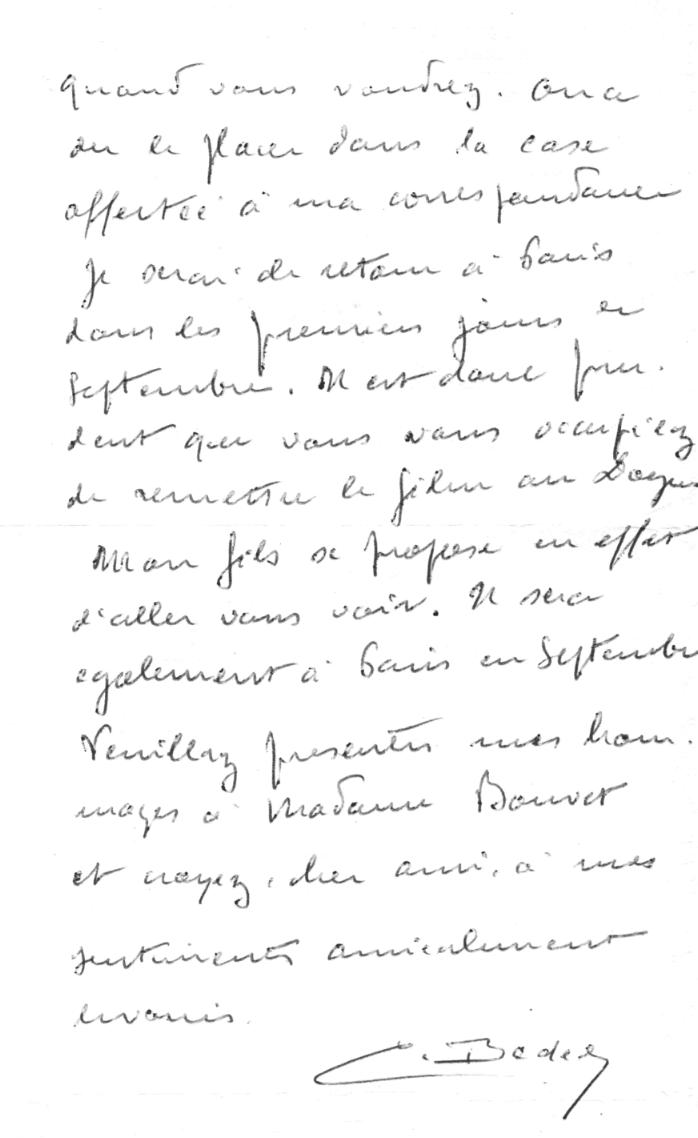 quand vous voudrez. On a
du le placer dans la case
affectée à ma correspondance
Je serai de retour à Paris
dans les premiers jours de
Septembre. Il est donc pru.
dent que vous vous occupiez
de remettre le film au
Mon fils se propose en effet
d'aller vous voir. Il sera
egalement à Paris en Septembre
Veuillez presenter mes hom.
mages à Madame Bouvet
et croyez, cher ami, à mes
sentiments amicalement
devoués.
C. Bedel